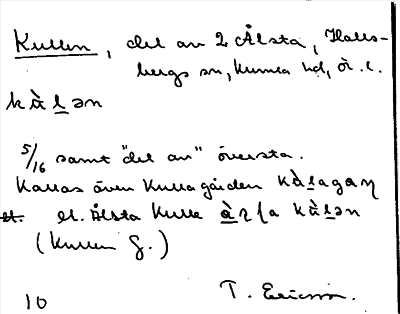 Kullen, del av 2 Ålsta, Halls-
bergs sn, Kumla hd, Ör. l.
kὰlən
5/16 samt "del av" översta.
Kallas även Kullagården kὰlagaɳ
el. Ålsta Kulle ὰɭʃa kὰlən
(Kullen G.)
10
T. Ericsson.